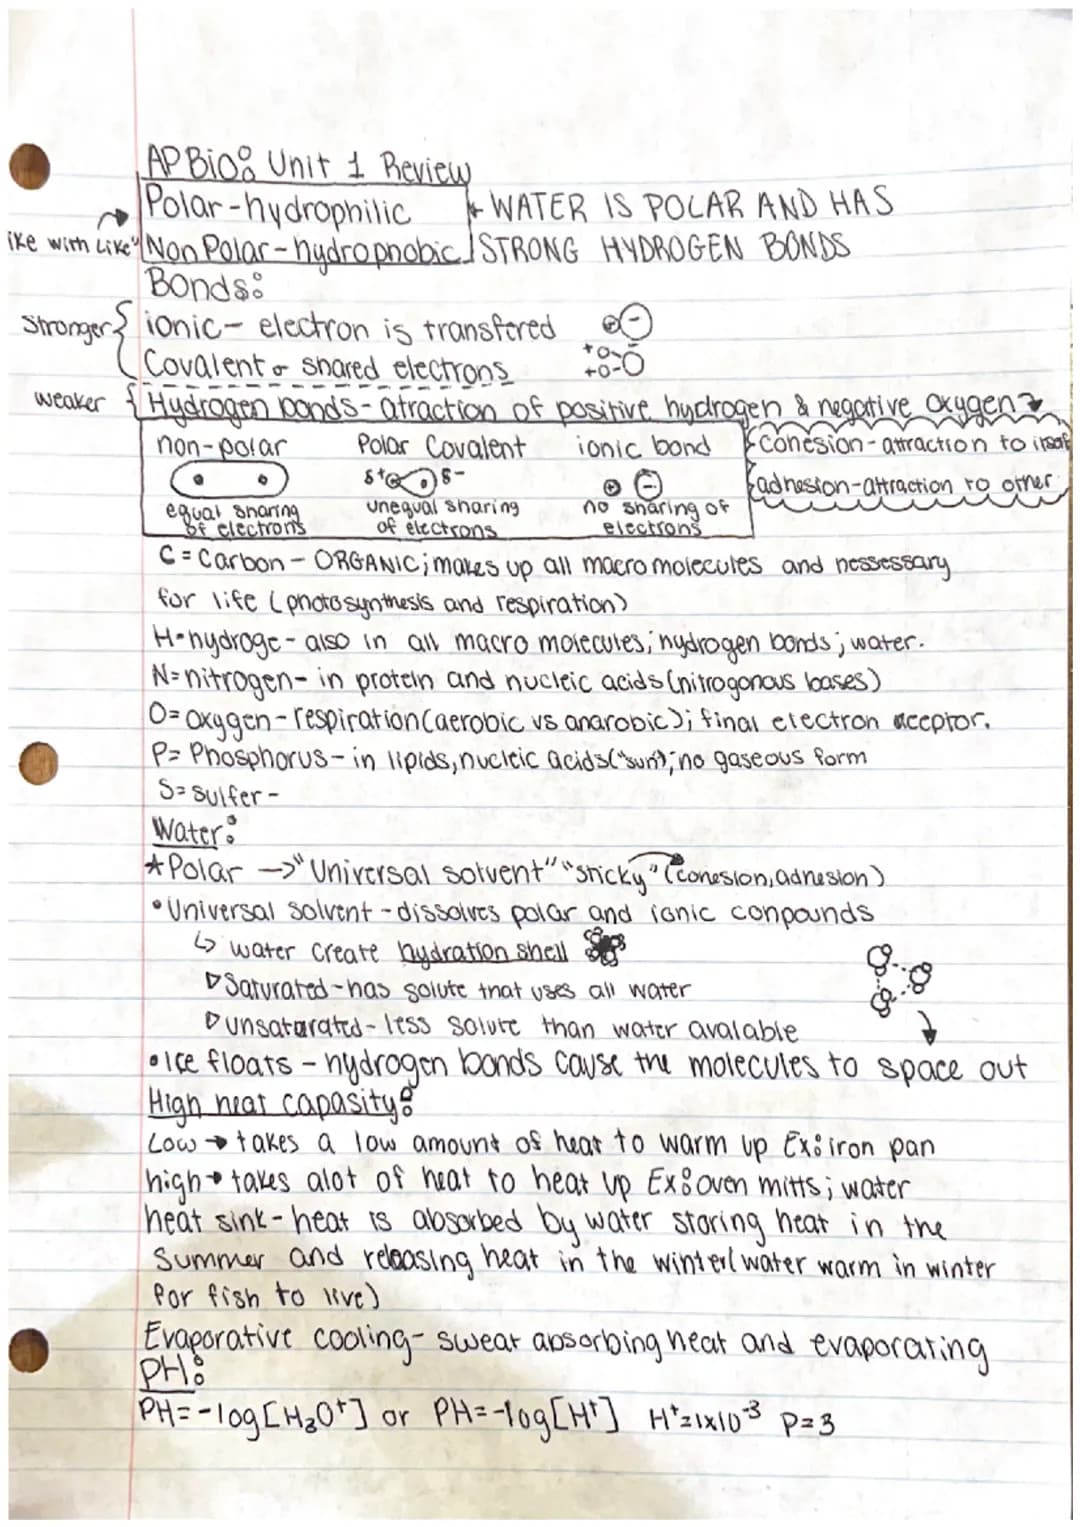 AP Bio: Unit 1 Review
Polar - hydrophilic
* WATER IS POLAR AND HAS
ike with Like"
Non Polar - hydrophobic
STRONG HYDROGEN BONDS
Bonds:
Stronger
ionic - electron is transfered
Covalent - shared electrons
weaker
Hydrogen bonds - atraction of positive hydrogen & negative oxygen
non-polar Polar Covalent ionic bond
cohesion - attraction to itself
δ+ δ-
adhesion - attraction to other
equal sharing of electrons
unequal sharing of electrons
no sharing of electrons
C = Carbon - ORGANIC; makes up all macromolecules and nessessary
for life (photosynthesis and respiration)
H = hydroge - also in all macro molecules; hydrogen bonds; water.
N = nitrogen - in protein and nucleic acids (nitrogonous bases)
O = oxygen - respiration (aerobic vs anarobic); final electron aceptor.
P = Phosphorus - in lipids, nucleic acids ; no gaseous form
S = sulfer -
Water:
*Polar → "Universal solvent" "sticky" (cohesion, adhesion)
• Universal solvent - dissolves polar and ionic conpounds
↳ water create hydration shell
▷ Saturated - has solute that uses all water
▷ unsaturated - less solute than water avalable
• Ice floats - hydrogen bonds cause the molecules to space out
High heat capasity:
Low → takes a low amount of heat to warm up Ex: iron pan
high → takes alot of heat to heat up Ex: oven mitts; water
heat sink - heat is absorbed by water storing heat in the
summer and releasing heat in the winter (water warm in winter
for fish to live)
Evaporative cooling - sweat absorbing heat and evaporating
PH:
PH = -log[H₃O⁺] or PH = -log[H⁺] H⁺=1x10⁻³ P=3